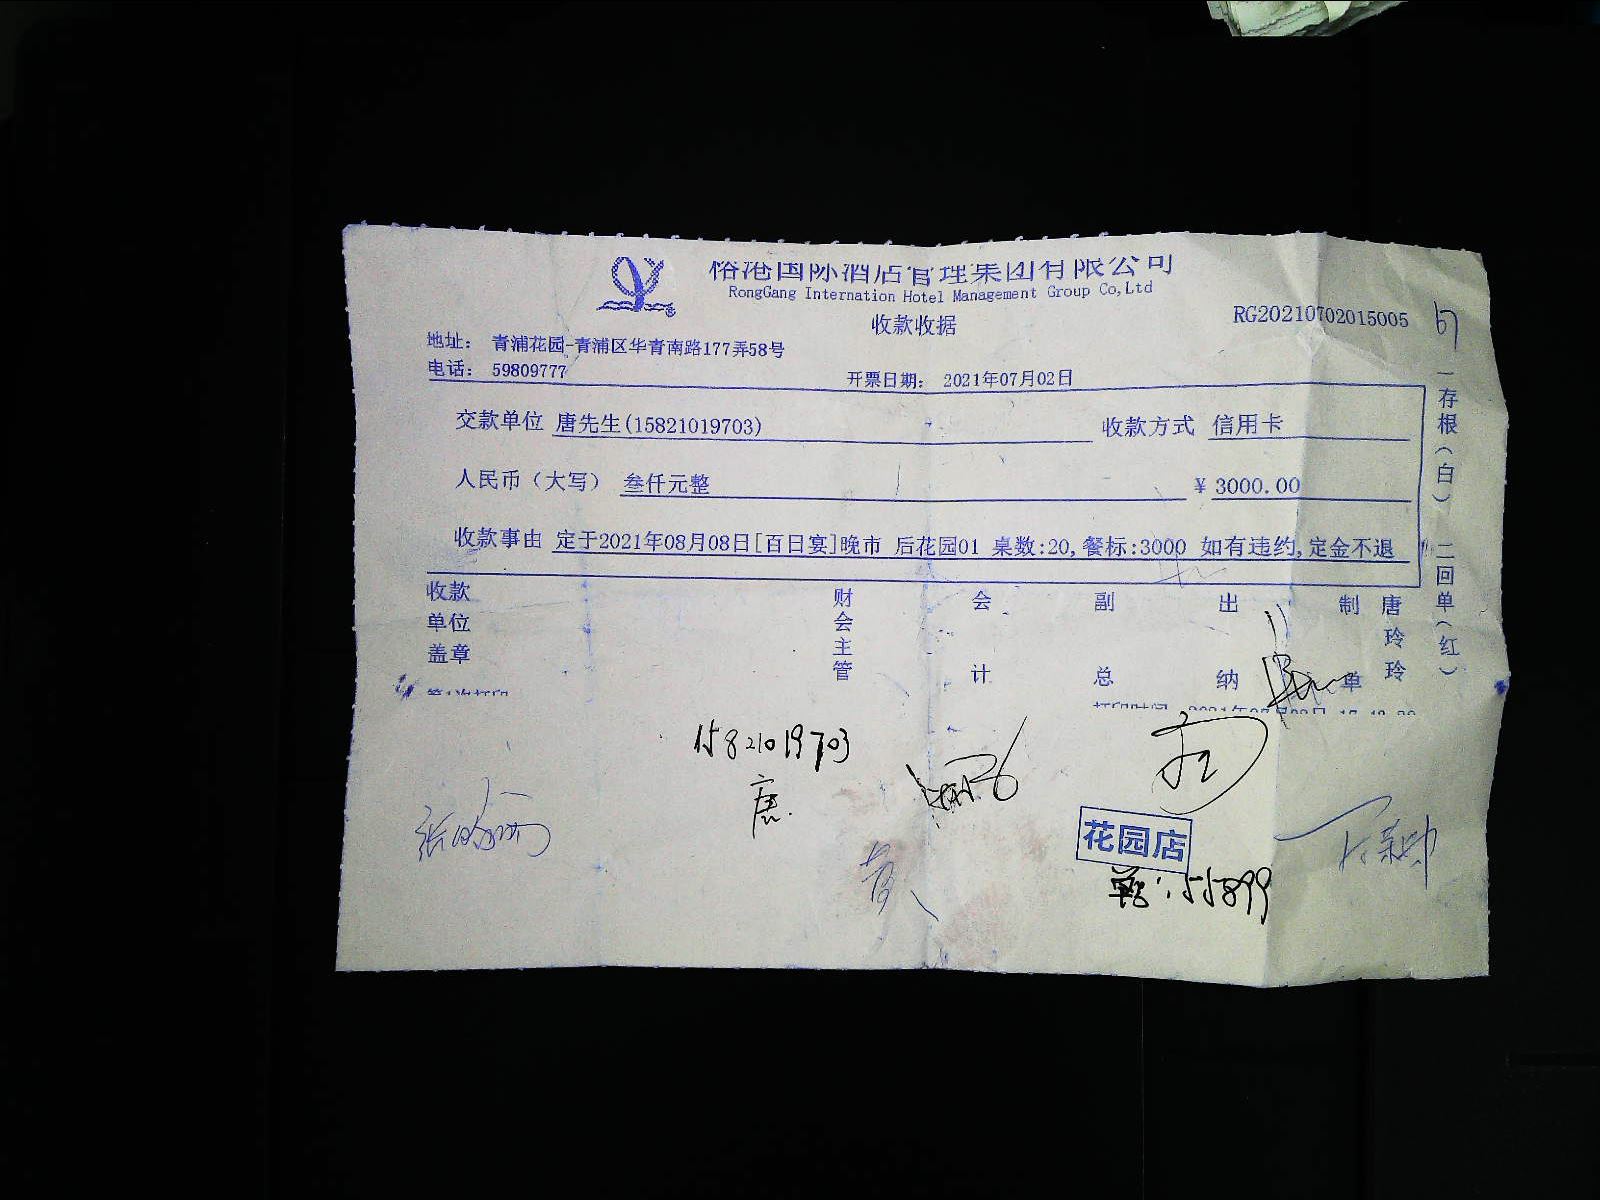 国际酒店管理集团有限公司
RongGang Internation Hotel Management Group Co,Ltd
收款收据
RG20210702015005
67
地址: 青浦花园-青浦区华青南路177弄58号
电话: 59809777
开票日期: 2021年07月02日
交款单位 唐先生(15821019703) 收款方式 信用卡
人民币(大写) 叁仟元整 ¥ 3000.00
收款事由 定于2021年08月08日[百日宴]晚市 后花园01 桌数:20,餐标:3000 如有违约,定金不退
一存根(白) 二回单(红)
收款单位盖章 财会主管 会计 副总 出纳 制单 唐玲玲
15821019703
唐
花园店
单号:55899